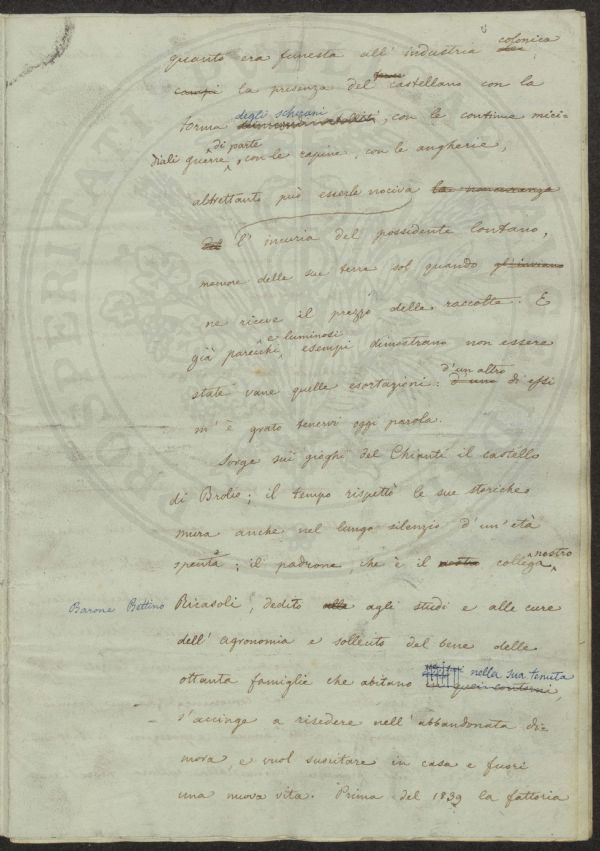 quanto era funesta all' industria dei colonica
campi la presenza del fiero castellano con la
torma degli scherani, con le continue mici-
diali guerre di parte, con le rapine, con le angherie,
altrettanto può esserle nociva la noncuranza
del l' incuria del possidente lontano,
memore delle sue terre sol quando gl' inviano
ne riceve il prezzo delle raccolte. E
già parecchi e luminosi esempi dimostrano non essere
state vane quelle esortazioni: d'uno d'un altro di essi
m' è grato tenervi oggi parola.
Sorge sui gioghi del Chianti il castello
di Brolio; il tempo rispettò le sue storiche
mura anche nel lungo silenzio d'un' età
spenta; il padrone, che è il nostro collega nostro
Barone Bettino Ricasoli, dedito alle agli studi e alle cure
dell' agronomia e sollecito del bene delle
ottanta famiglie che abitano quei contorni nella sua tenuta,
s' accinge a risedere nell' abbandonata di-
mora, e vuol suscitare in casa e fuori
una nuova vita. Prima del 1839 la fattoria